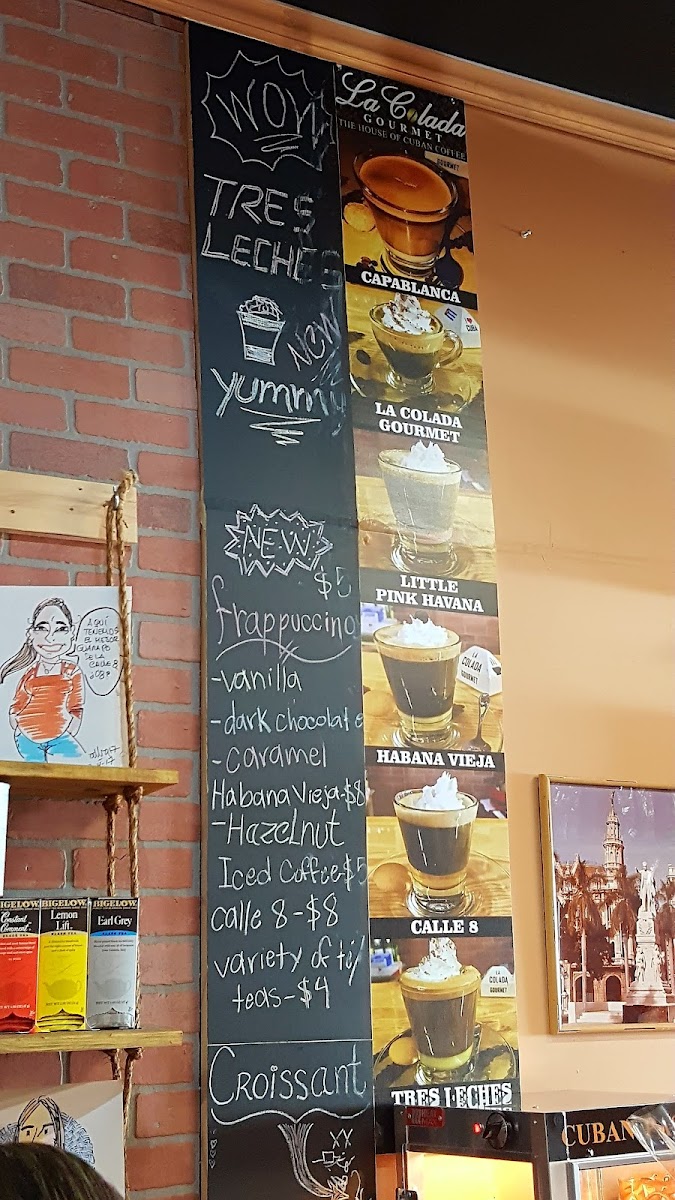 WOW
TRES
LECHES
NEW
yummy
NEW
$5
frappuccino
-vanilla
-dark chocolate
-caramel
Habana Vieja-$8
-Hazelnut
Iced Coffee $5
calle 8-$8
variety of
teas-$4
CROISSANT
La Colada
GOURMET
THE HOUSE OF CUBAN COFFEE
GOURMET
CAPABLANCA
I ♥
CUBA
LA COLADA
GOURMET
LITTLE
PINK HAVANA
LA
COLADA
GOURMET
HABANA VIEJA
CALLE 8
LA
COLADA
GOURMET
TRES LECHES
AQUÍ
TENEMOS
EL MEJOR
GUARAPO
DE LA
CALLE 8
BIGELOW
Constant
Comment
BIGELOW
Lemon
Lift
BIGELOW
Earl Grey
CUBAN